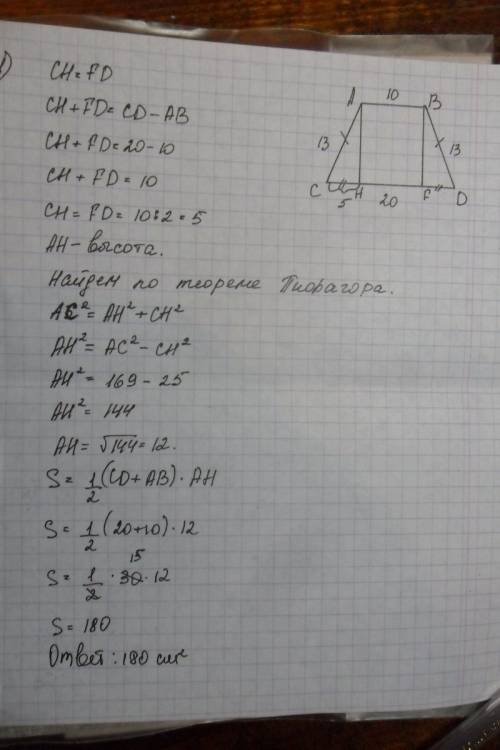 1)
CH = FD
CH + FD = CD - AB
CH + FD = 20 - 10
CH + FD = 10
CH = FD = 10 : 2 = 5
AH - высота.
Найдем по теореме Пифагора.
AC² = AH² + CH²
AH² = AC² - CH²
AH² = 169 - 25
AH² = 144
AH = √144 = 12.
S = 1/2 (CD + AB) · AH
S = 1/2 (20 + 10) · 12
15
S = 1/2 · 30 · 12
S = 180
Ответ: 180 см²
A 10 B
13 13
C H F D
5 20